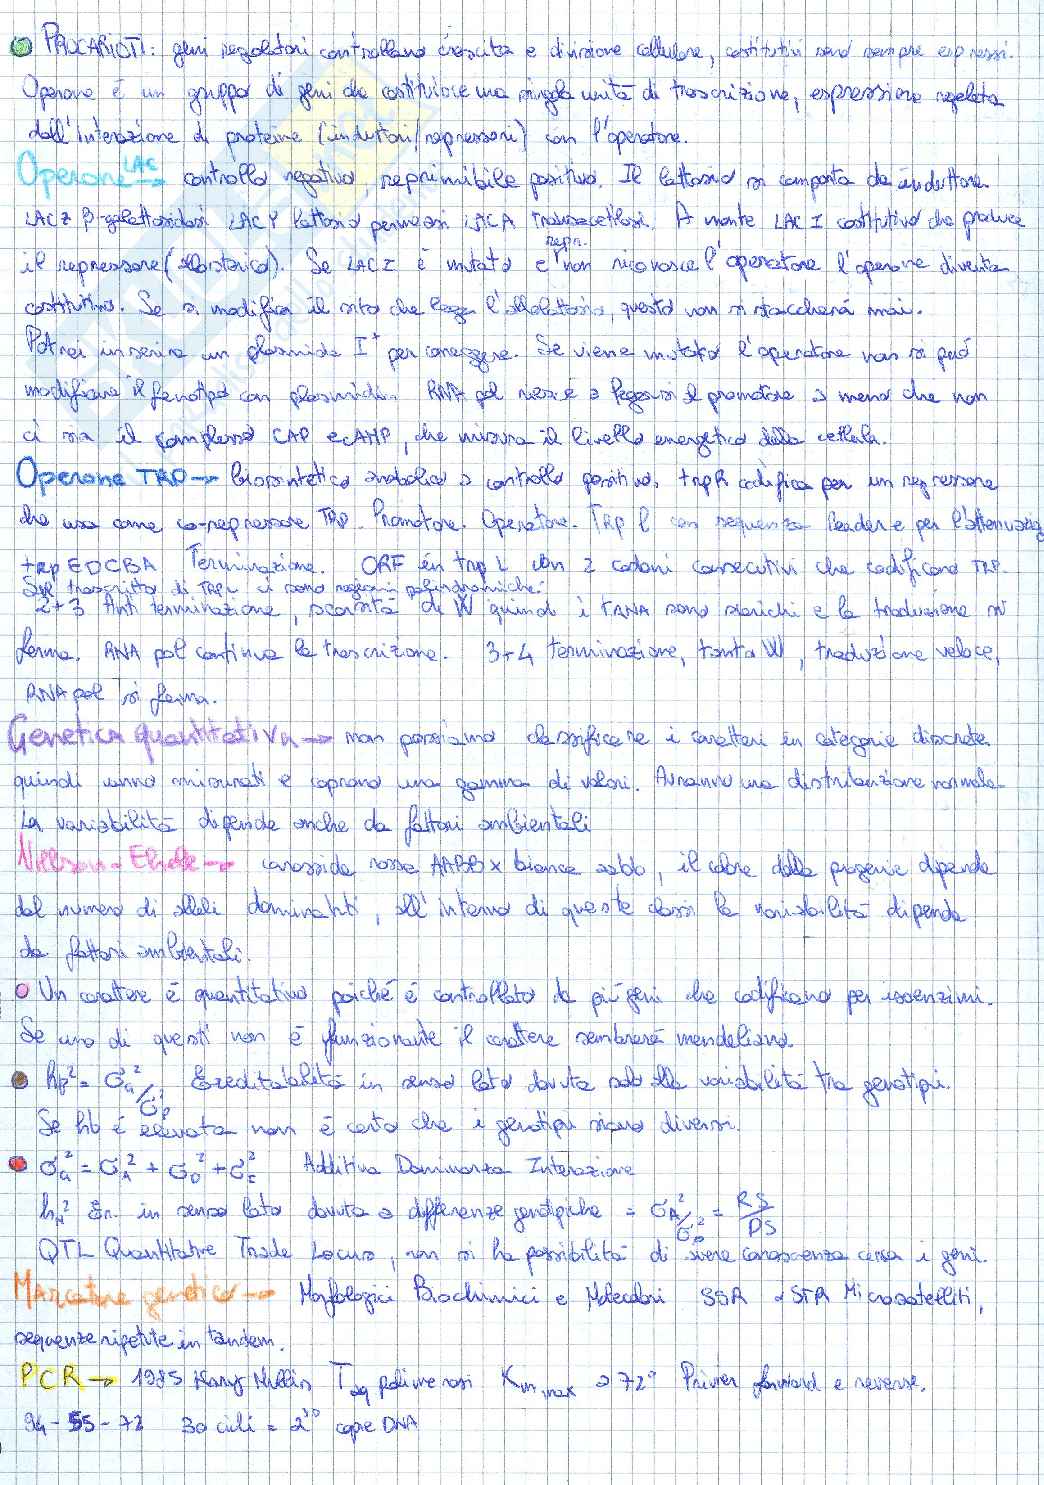 PROCARIOTI: geni regolatori controllano crescita e divisione cellulare, costitutivi sono sempre espressi.
Operone è un gruppo di geni che costituisce una singola unità di trascrizione, espressione regolata
dall'interazione di proteine (induttori/repressori) con l'operatore.
Operone LAC → controllo negativo, reprimibile positivo. Il lattosio si comporta da induttore
LAC Z β-galattosidasi LAC Y lattosio permeasi LAC A transacetilasi. A monte LAC I costitutivo che produce
repr.
il repressore (allosterico). Se LAC I è mutato e non riconosce l'operatore l'operone diventa
costitutivo. Se si modifica il sito che lega l'allolattosio, questo non si staccherà mai.
Potrei inserire un plasmide I⁺ per correggere. Se viene mutato l'operatore non si può
modificare il fenotipo con plasmidi. RNA pol riesce a legarsi al promotore a meno che non
ci sia il complesso CAP e cAMP, che misura il livello energetico della cellula.
Operone TRP → biosintetico anabolico a controllo positivo. trpR codifica per un repressore
che usa come co-repressore TRP. Promotore. Operatore. TRP L con sequenza leader e per l'attenuazione
trp EDCBA Terminazione. ORF in trp L con 2 codoni consecutivi che codificano TRP.
Sul trascritto di TRP L ci sono regioni palindromiche.
2+3 Anti terminazione, scarsità di W quindi i tRNA sono scarichi e la traduzione si
ferma. RNA pol continua la trascrizione. 3+4 terminazione, tanta W, traduzione veloce,
RNA pol si ferma.
Genetica quantitativa → non possiamo classificare i caratteri in categorie discrete
quindi vanno misurati e coprono una gamma di valori. Avranno una distribuzione normale.
La variabilità dipende anche da fattori ambientali
Nillson-Ehle → cariosside rossa AABB x bianca aabb, il colore della progenie dipende
dal numero di alleli dominanti, all'interno di queste classi la variabilità dipende
da fattori ambientali.
Un carattere è quantitativo poiché è controllato da più geni che codificano per isoenzimi.
Se uno di questi non è funzionante il carattere sembrerà mendeliano.
hb² = σG²/σp² Ereditabilità in senso lato dovuta solo alla variabilità tra genotipi.
Se hb è elevata non è certo che i genotipi siano diversi.
σG² = σA² + σD² + σI² Additiva Dominanza Interazione
hN² Er. in senso lato dovuta a differenze genotipiche = σA²/σp² = RS/DS
QTL Quantitative Trade Locus, non si ha possibilità di avere conoscenza circa i geni.
Marcatore genetico → Morfologici Biochimici e Molecolari SSR o STR Microsatelliti,
sequenze ripetute in tandem.
PCR → 1985 Kary Mullis Taq polimerasi Km,max a 72° Primer forward e reverse.
94-55-72 30 cicli = 2³⁰ copie DNA